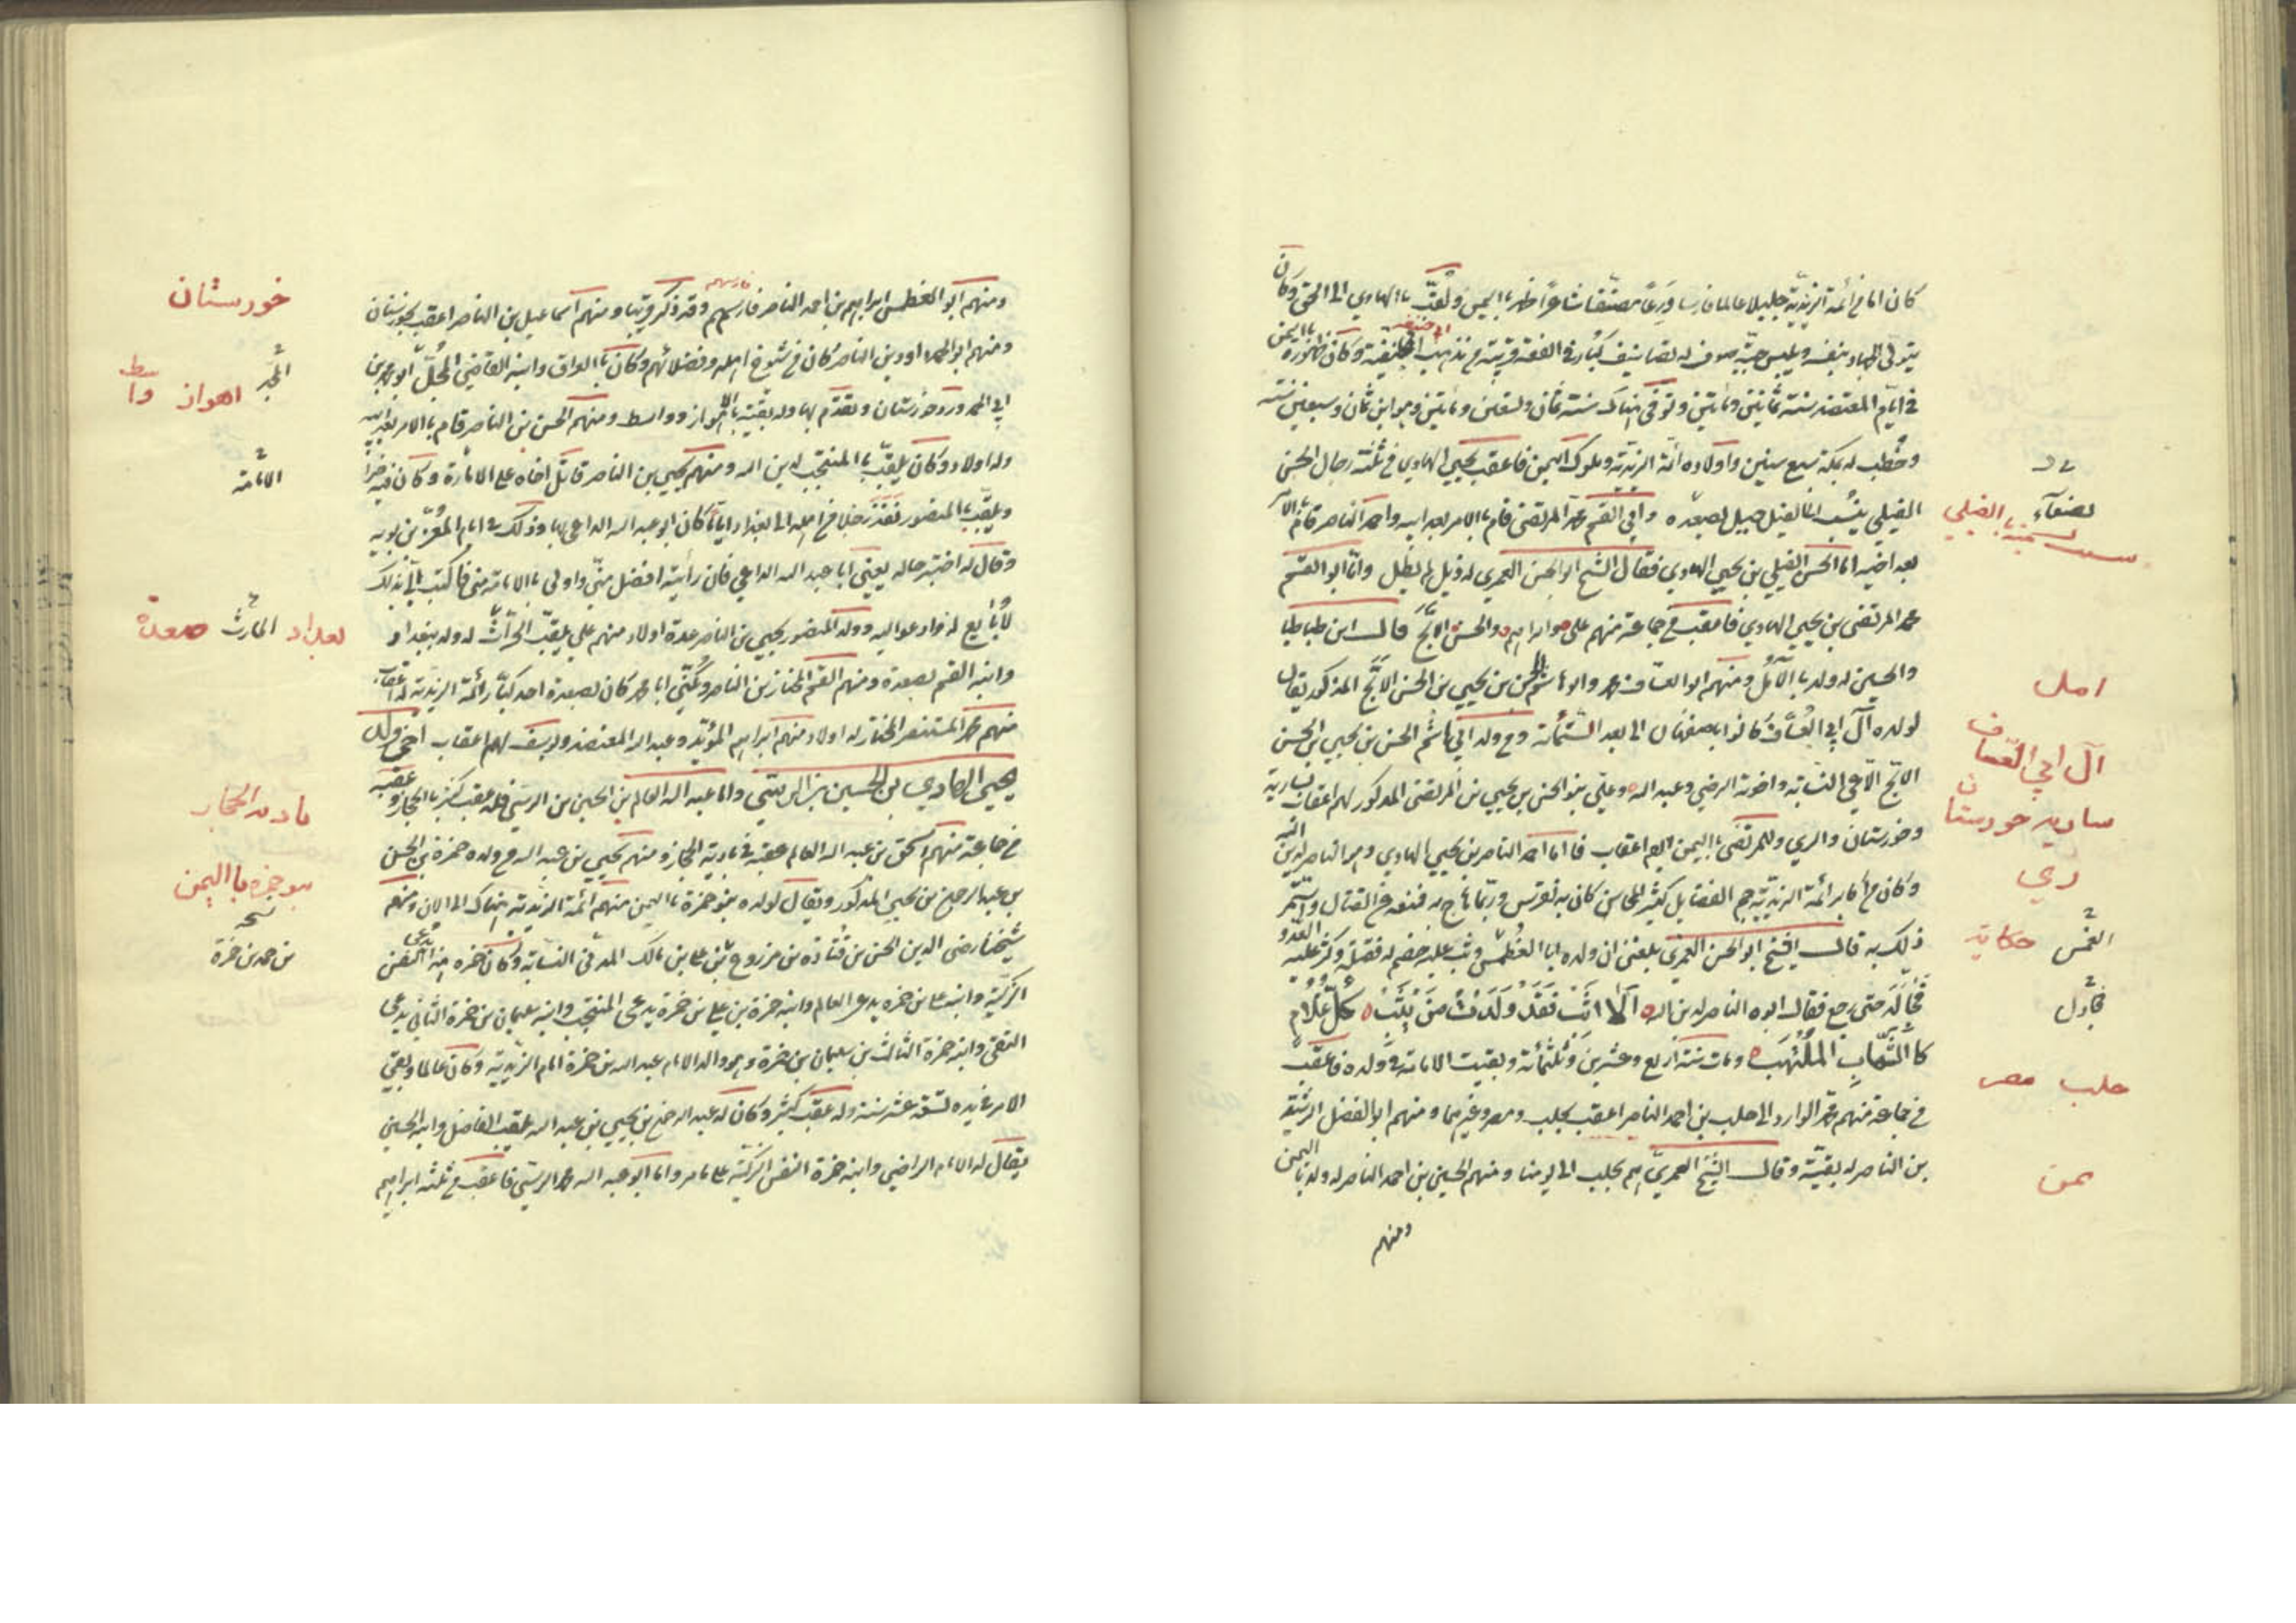 كان اماما من ائمة الزيدية جليلا عالما فارسا ورعا مصنفا شاعرا ظهر باليمن ولقب بالهادي الى الحق وكان
يتولى الجهاد بنفسه ويلبس جبة صوف له تصانيف كبار في الفقه قريبة من مذهب ابي حنيفة وكان ظهوره باليمن
في ايام المعتضد سنة ثمانين ومائتين وتوفى هناك سنة ثمان وتسعين ومائتين وهو ابن ثمان وسبعين سنة
وخطب له بمكة سبع سنين واولاده ائمة الزيدية وملوك اليمن فاعقب يحيى الهادي في ثلثة رجال الحسن
الفيلي ينسب الى الفيل جبيل بصعده وابي القسم محمد المرتضى قام بالامر بعد ابيه واحمد الناصر قام بالامر
بعد اخيه اما الحسن الفيلي بن يحيى الهادي فقال الشيخ ابو الحسن العمري له ذيل لم يطل واما ابو القسم
محمد المرتضى بن يحيى الهادي فاعقب من جماعة منهم علي وابراهيم والحسن الابح قال ابن طباطبا
والحسين له ولد بالآمل ومنهم ابو العساف محمد وابو هاشم الحسن بن يحيى بن الحسن الابح المذكور يقال
لولده آل ابي العساف كانوا باصفهان الى بعد الستمائة ومن ولد ابي هاشم الحسن بن يحيى بن الحسن
الابح الاعمى النسابة واخوته الرضي وعبد الله وعلي بنو الحسن بن يحيى بن المرتضى المذكور لهم اعقاب بسارية
وخوزستان والري وللمرتضى باليمن اليوم اعقاب فاما احمد الناصر بن يحيى الهادي وهو الناصر لدين الله
وكان من اكابر ائمة الزيدية جم الفضايل كثير المحاسن كان به نقرس وربما هاج به فمنعه من القتال واستمر
ذلك به قال الشيخ ابو الحسن العمري بلغني ان ولده ابا الغطمش وثب عليه خصم له فقتله وكر عليه العدو
فجادله حتى رجع فقال ابوه الناصر لدين الله الا اثب فقد ولدت من يثب كل غلام
كالشهاب الملتهب ومات سنة اربع وعشرين وثلثمائة وبقيت الامامة في ولده فاعقب
من جماعة منهم محمد الوارد الى حلب بن احمد الناصر اعقب بحلب ومصر وغيرهما ومنهم ابو الفضل الرشيد
بن الناصر له بقية وقال الشيخ العمري هم بحلب الى يومنا ومنهم الحسين بن احمد الناصر له ولد باليمن
ومنهم
لصنعآء
بالفيلي
امل
آل ابي العساف
ساريه خورستان
ري
حكاية
حلب مصر
يمن
ومنهم ابو الغطمش ابراهيم بن احمد الناصر فارسهم وقد ذكر قريبا ومنهم اسماعيل بن الناصر اعقب بخوزستان
ومنهم ابو الحمد داود بن الناصر كان من شيوخ اهله وفضلائهم وكان بالعراق وابنه القاضي المجل ابو محمد بن
ابي الحمد ورد خوزستان وتقدم بها وله بقية بالاهواز وواسط ومنهم الحسن بن الناصر قام بالامر بعد ابيه
وله اولاد وكان يلقب بالمنتجب لدين الله ومنهم يحيى بن الناصر قاتل اخاه على الامارة وكان فيه خيرا
ويلقب بالمنصور نفذ رجلا من اهله الى بغداد ايام كان ابو عبد الله الداعي بها وذلك في ايام المعز بن بويه
وقال له اختبر حاله يعني ابا عبد الله الداعي فان رأيته افضل مني واولى بالامامة مني فاكتب الي بذلك
لأبايع له فزاد عواليه وولد المنصور يحيى بن الناصر عدة اولاد منهم علي يلقب الحارث له ولد ببغداد
وابنه القسم بصعدة ومنهم القسم المختار بن الناصر وكني ابا محمد كان بصعدة احد كبار ائمة الزيدية له اعقاب
منهم محمد المستنصر المختار له اولاد منهم ابراهيم المؤيد وعبد الله المعتضد ويوسف لهم اعقاب آخر ولد
يحيى الهادي بن الحسين بن الرسي واما عبد الله العالم بن الحسين بن الرسي فله عقب كثير بالحجاز وعقبه
من جماعة منهم اسحق بن عبد الله العالم عقبه في بادية الحجاز ومنهم يحيى بن عبد الله من ولده حمزة بن الحسن
بن عبد الرحمن بن يحيى المذكور ويقال لولده بنو حمزة باليمن منهم ائمة الزيدية هناك الى الان ومنهم
شيخنا رضي الدين الحسن بن قتادة بن مزروع بن علي بن مالك المدني النسابة وكان حمزه هذا يدعى النفس
الزكية وابنه علي بن حمزه يدعى العالم وابنه حمزة بن علي بن حمزة يدعى المنتجب وابنه سليمان بن حمزة الثاني يدعى
التقي وابنه حمزة الثالث بن سليمان بن حمزة وهو والد الامام عبد الله بن حمزة امام الزيدية وكان عالما وبقي
الامر في يده تسعة عشر سنة وله عقب كثير وكان له عبد الرحمن بن يحيى بن عبد الله يلقب الفاضل وابنه الحسن
يقال له الامام الراضي وابنه حمزة النفس الزكية على ما مر واما ابو عبد الله محمد الرسي فاعقب من ثلثة ابراهيم
خورستان
اهواز واسط
الامامة
بغداد الحارث صعدة
باديه الحجاز
بنو حمزه باليمن
بن حمزة